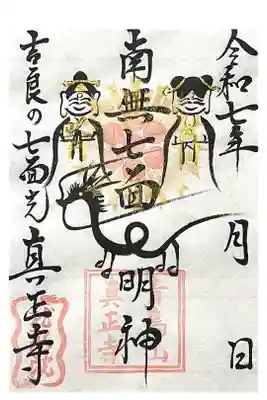 令和七年 月 日
南無七面明神
吉良の七面
真正寺
真正寺